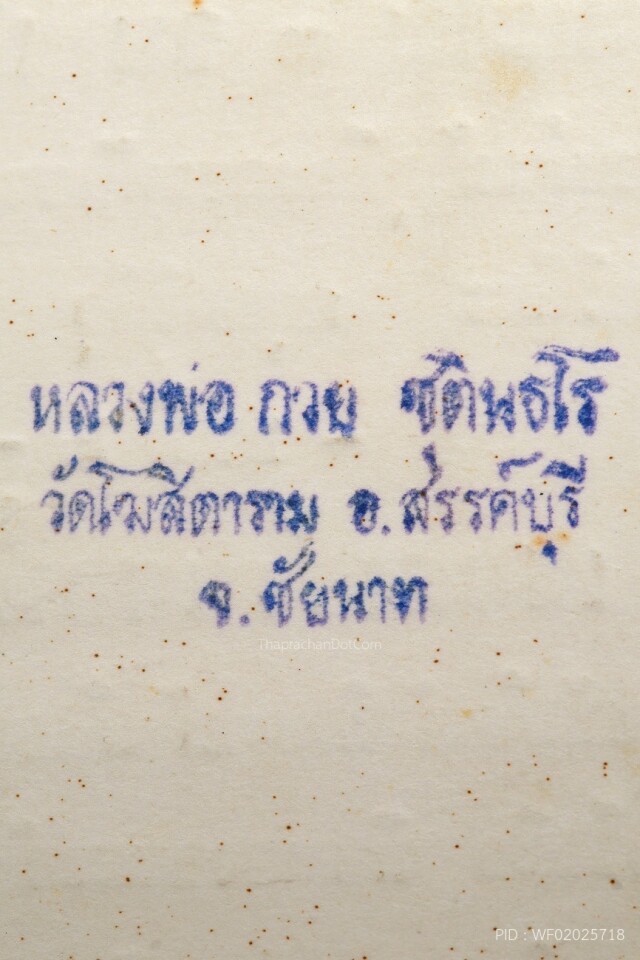 หลวงพ่อ กวย ชุตินธโร
วัดโฆสิตาราม อ.สรรค์บุรี
จ.ชัยนาท
ThaprachanDotCom
PID : WF02025718